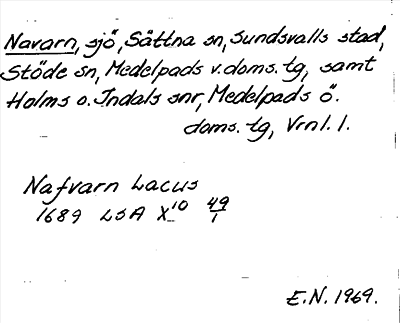 Navarn, sjö, Sättna sn, Sundsvalls stad,
Stöde sn, Medelpads v. doms. tg, samt
Holms o. Indals snr, Medelpads ö.
doms. tg, Vrnl. l.
Nafvarn Lacus
1689 LSA X 10 49/1
E.N. 1969.